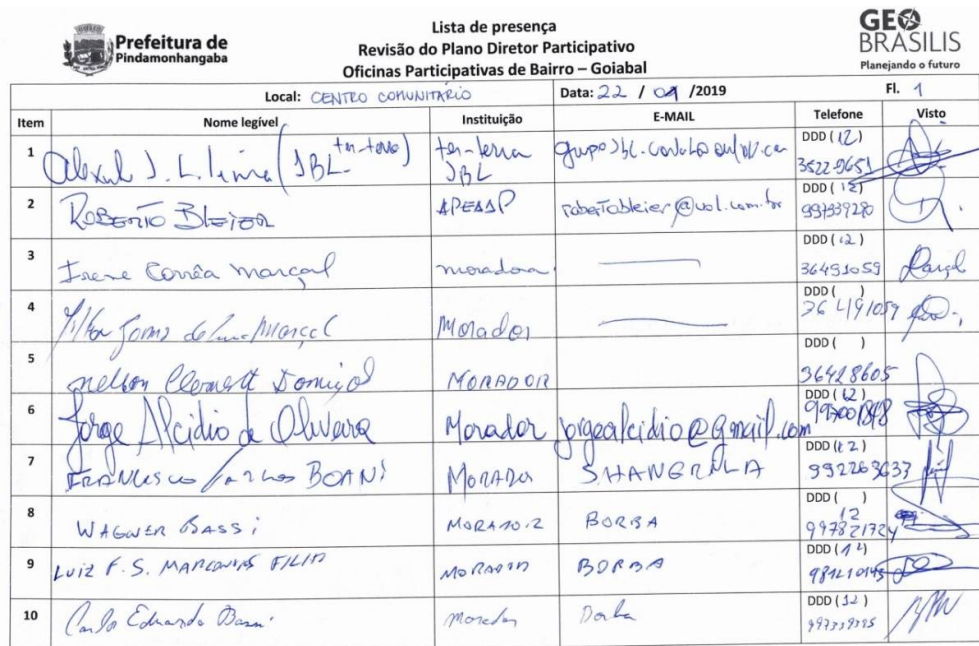 Prefeitura de
Pindamonhangaba
Lista de presença
Revisão do Plano Diretor Participativo
Oficinas Participativas de Bairro – Goiabal
GEO
BRASILIS
Planejando o futuro
Local: CENTRO COMUNITÁRIO Data: 22 / /2019 Fl. 1
Item Nome legível Instituição E-MAIL Telefone Visto
1 J. L. Lima (JBL JBL DDD (12)
2 ROBERTO BLEIER APEAAP robertobleier@uol.com.br DDD (12) 997939280
3 Irene Corrêa Marçal moradora DDD (12) 36491059
4 Marçal Morador DDD ( ) 36491059
5 Nelson MORADOR DDD ( ) 36428605
6 Jorge Alcidio de Oliveira Morador jorgealcidio@gmail.com DDD (12)
7 FRANCISCO BOANI MORADOR SHANGRILA DDD (12) 992263637
8 WAGNER BASSI MORADOR BORBA DDD ( ) 12 997821724
9 LUIZ F.S. FILHO MORADOR BORBA DDD (12)
10 Carlos Eduardo Bassi Morador Borba DDD (12)